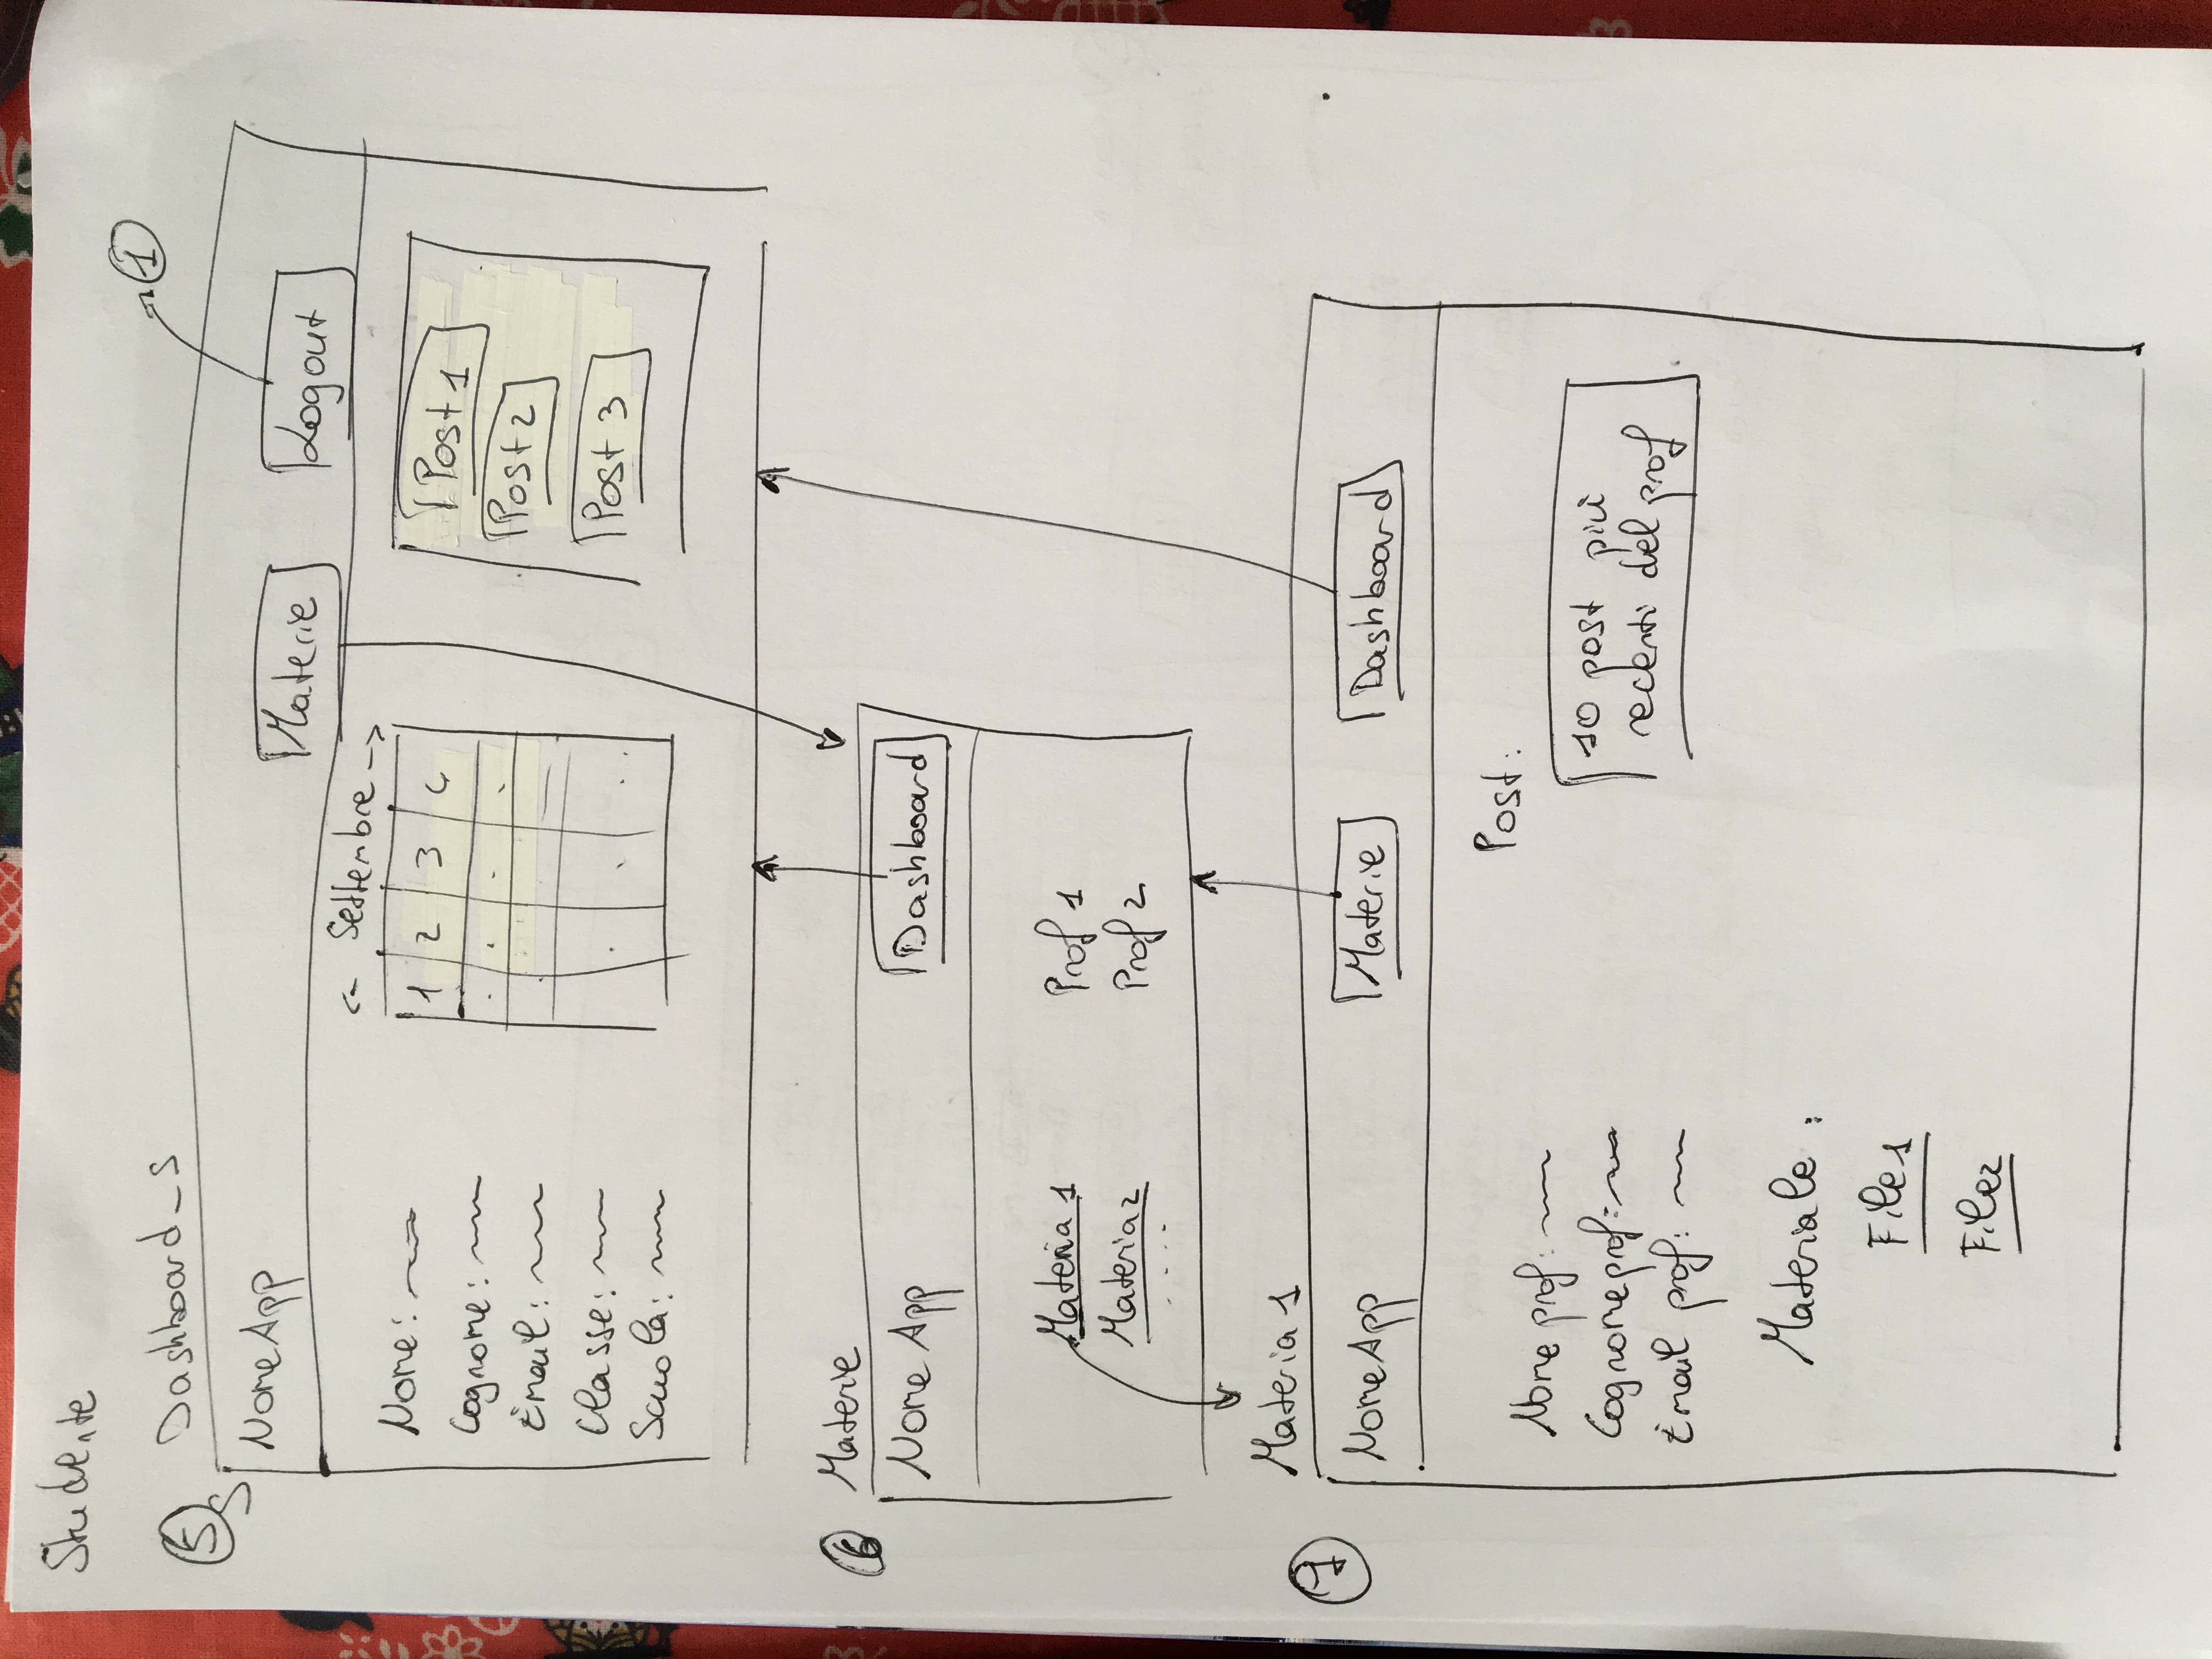 Studente
1
5s
Dashboard_S
NomeApp
Materie
Logout
<- Settembre ->
Nome:
Cognome:
Email:
Classe:
Scuola:
1 2 3 4
Post 1
Post 2
Post 3
6
Materie
Nome App
Dashboard
Materia 1 Prof 1
Materia 2 Prof 2
....
Materia 1
7
NomeApp
Materie
Dashboard
Nome prof:
Cognome prof:
Email prof:
Post:
10 post più
recenti del prof
Materiale:
File 1
File 2